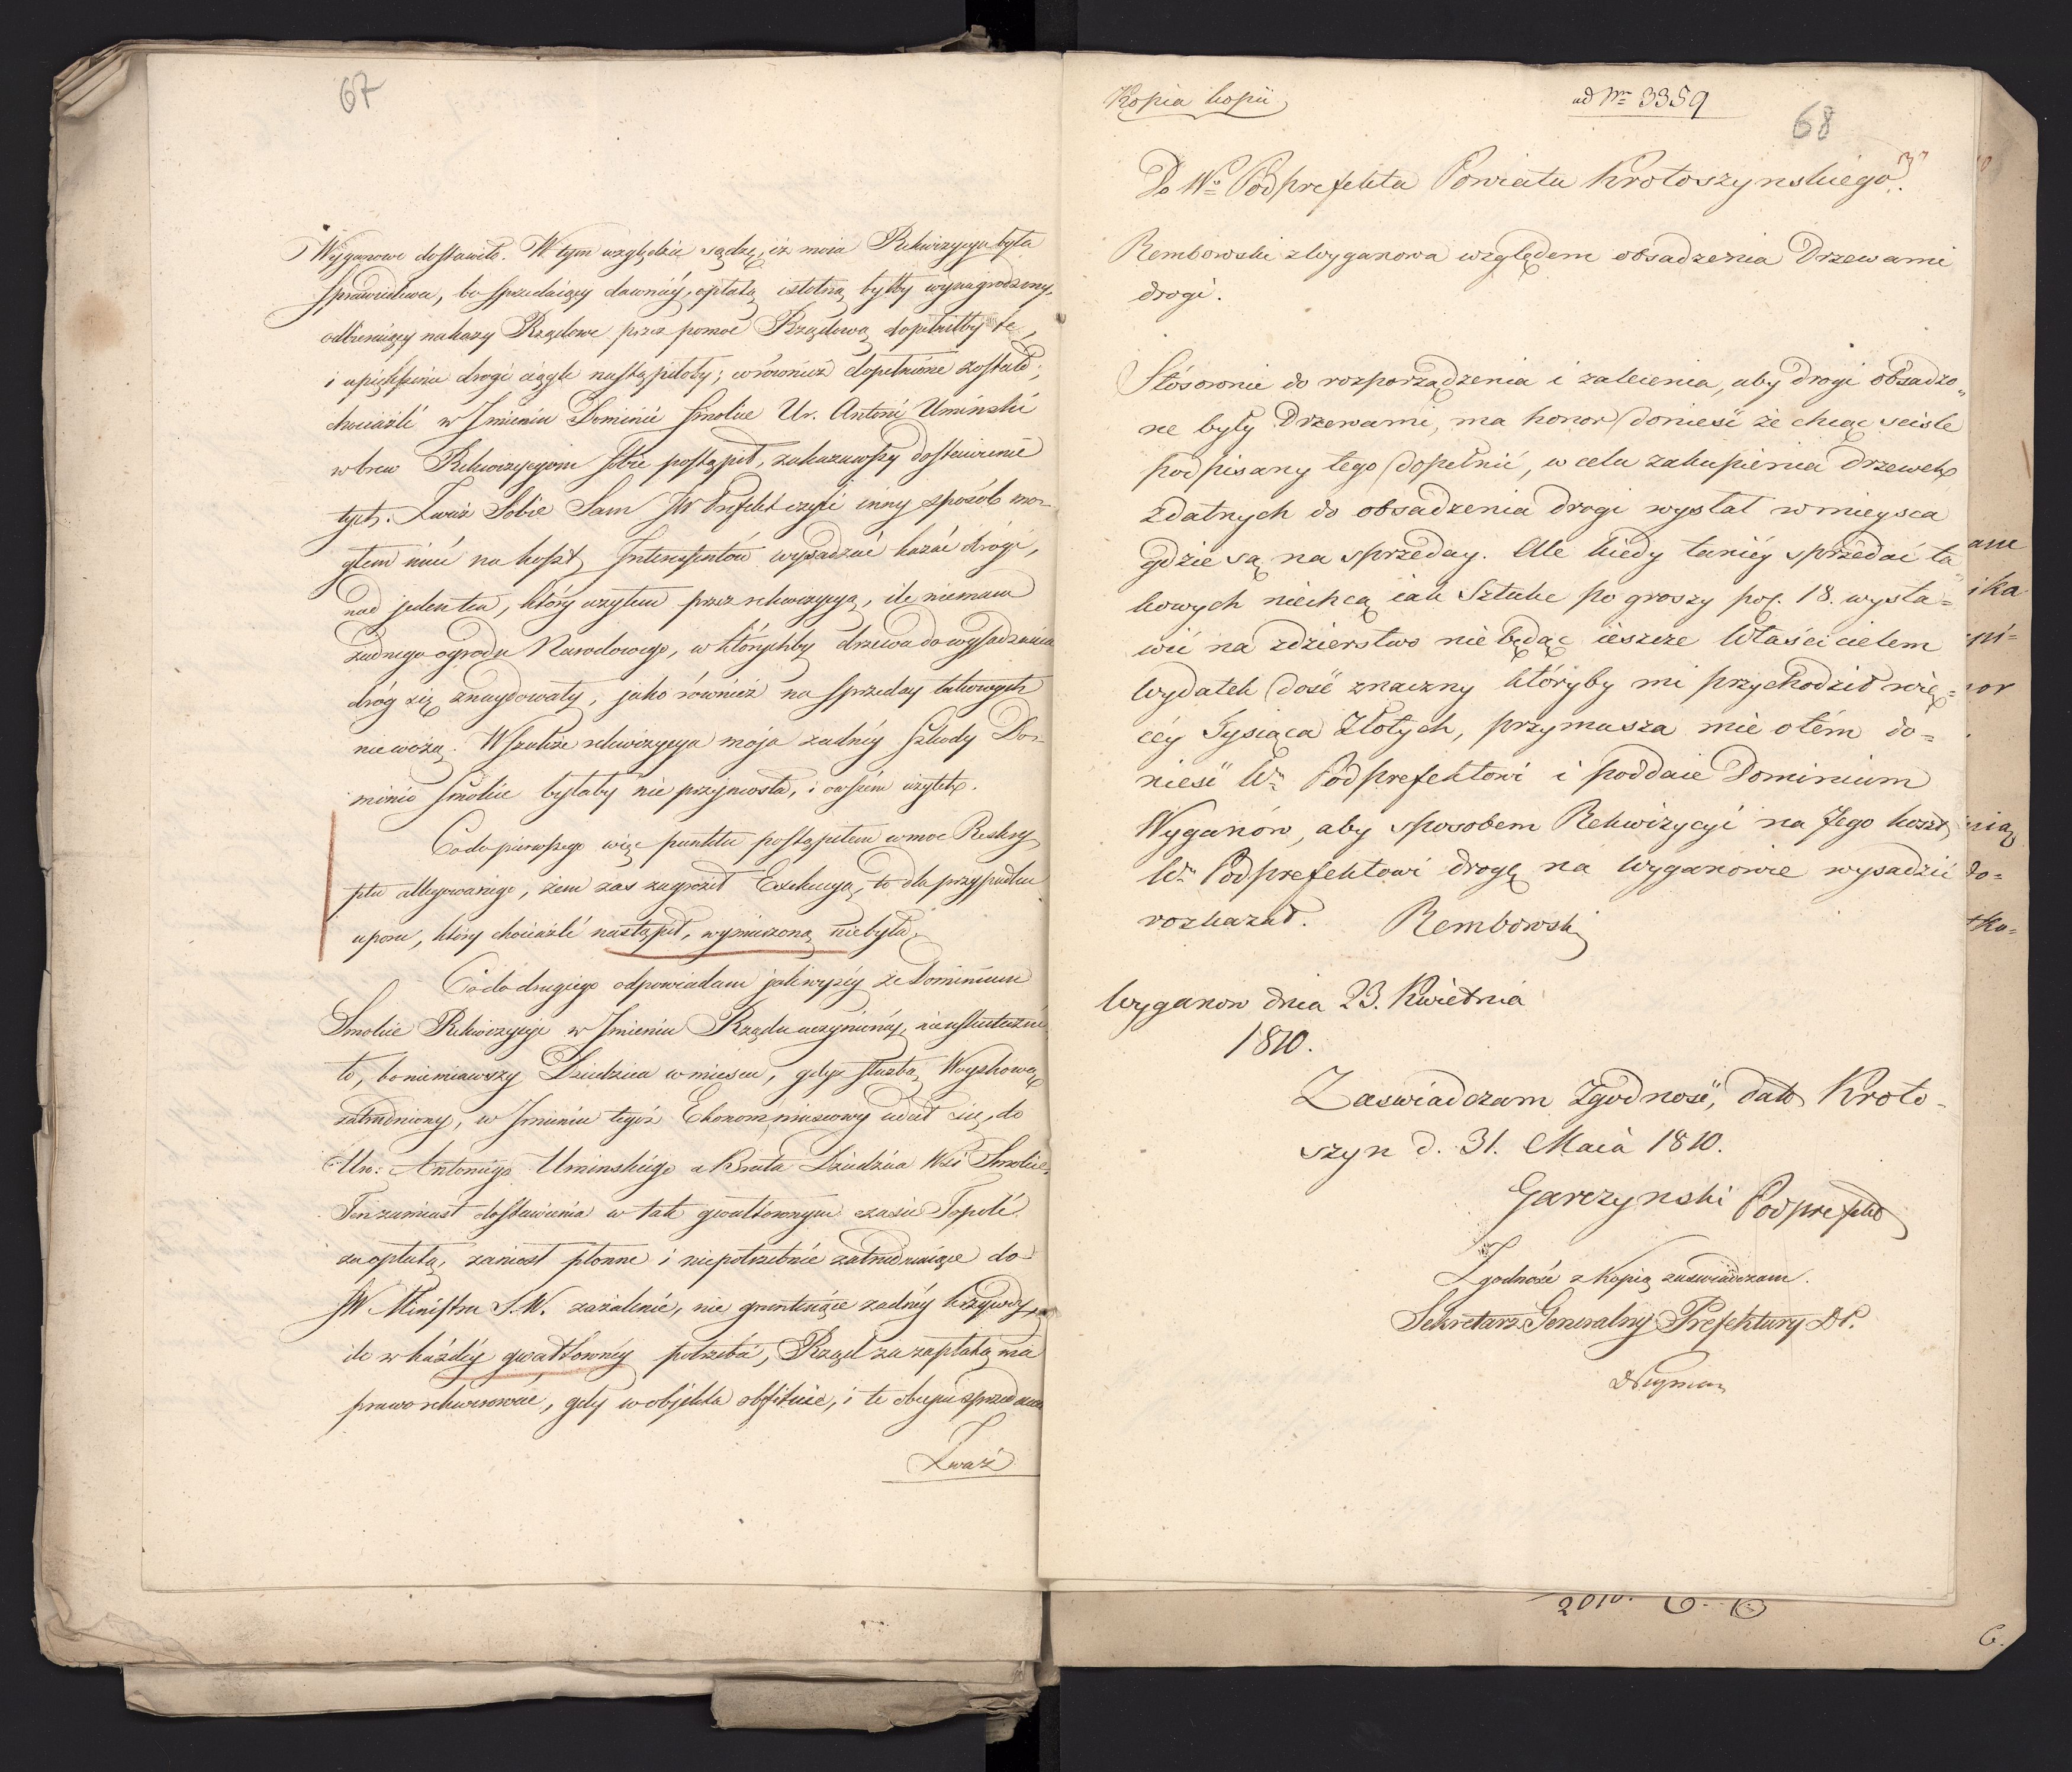 67
Wyganowe dostawiło. W tym względzie sądzę, iż moia Rekwizycya była
sprawiedliwa, bo sprzedaiący dawnéy, opłatą istotną byłby wynagrodzony,
odbieraiący nakazy Rządowe przez pomoc Rządową dopełniłby te,
i upiększenie drogi ciągle nastąpiłoby; wrównież dopełnione zostało;
chociażli w Jmieniu Dominii Smolic Ur. Antoni Uminski
wbrew Rekwizycyom sobie postąpił, zakazawszy dostawienie
tych. Zważ Sobie Sam JW Prefekt czyli inny sposób mo-
głem mieć na koszt Interessentów wysadzać kazać drogi,
nad jeden ten, który użyłem przez rekwizycyą, ile niemam
żadnego ogrodu Narodowego, w którychby drzewa do wysadzenia
dróg się znaydowały, jako również na sprzeday takowych
niewożą. Wszakże rekwizycya moja żadnéy szkody Do-
minio Smolic byłaby nie przyniosła, i owszem użytek.
Co do pierwszego więc punktu postąpiłem w moc Reskry-
ptu allegowanego, żem zaś zagroził Exekucyą, to dla przypadku
uporu, który chociażli nastąpił, wymierzoną niebyła.
Co do drugiego odpowiadam jak wyżéy że Dominium
Smolic Rekwizycyi w Jmieniu Rządu uczynionéy, nieuskuteczni-
ło, bo niemiawszy Dziedzica w mieyscu, gdyż służbą Woyskową
zatrudniony, w Jmieniu tegóż Ekonom mieyscowy udał się, do
Ur: Antoniego Uminskiego a Brata Dziedzica Wsi Smolic.
Ten zamiast dostawienia w tak gwałtownym czasie Topoli
za opłatą, zaniosł płonne i niepotrzebnie zatrudniaiące do
JW Ministra S.W. zażalenie, nie gruntuiące żadnéy krzywdy,
ile w każdéy gwałtownéy potrzebie, Rząd za zapłatą ma
prawo rekwirować, gdy w objekta obfituie, i te okupuie sprzedaie
Zważ
Kopia kopii
ad Nr 3359
68
Do Wo Podprefekta Powiatu Krotoszynskiego.
Rembowski z Wyganowa względem obsadzenia Drzewami
drogi.
Stósownie do rozporządzenia i zalecenia, aby drogi obsadzo-
ne były Drzewami, ma honor donieść że chcąc scisle
podpisany tego dopełnić, w celu zakupienia drzewek
zdatnych do obsadzenia drogi wysłał w mieysca
gdzie są na sprzeday. Ale kiedy taniéy sprzedać ta-
kowych niechcą iak Sztukę po groszy pol. 18. wysta=
wić na zdzierstwo nie będąc ieszcze Właścicielem
Wydatek dość znaczny któryby mi przychodził wię=
céy Tysiąca Złotych, przymusza mie o tém do=
nieść Wu Podprefektowi i poddaie Dominium
Wyganów, aby sposobem Rekwizycyi na Jego koszt
Wn Podprefektowi drogę na Wyganowie wysadzić
rozkazał. Rembowski
Wyganow dnia 23. Kwietnia
1810.
Zaswiadczam Zgodność, dato Kroto-
szyn d. 31. Maia 1810.
Garczynski Podprefekt
Zgodność z kopią zaswiadczam.
Sekretarz Generalny Prefektury DP.